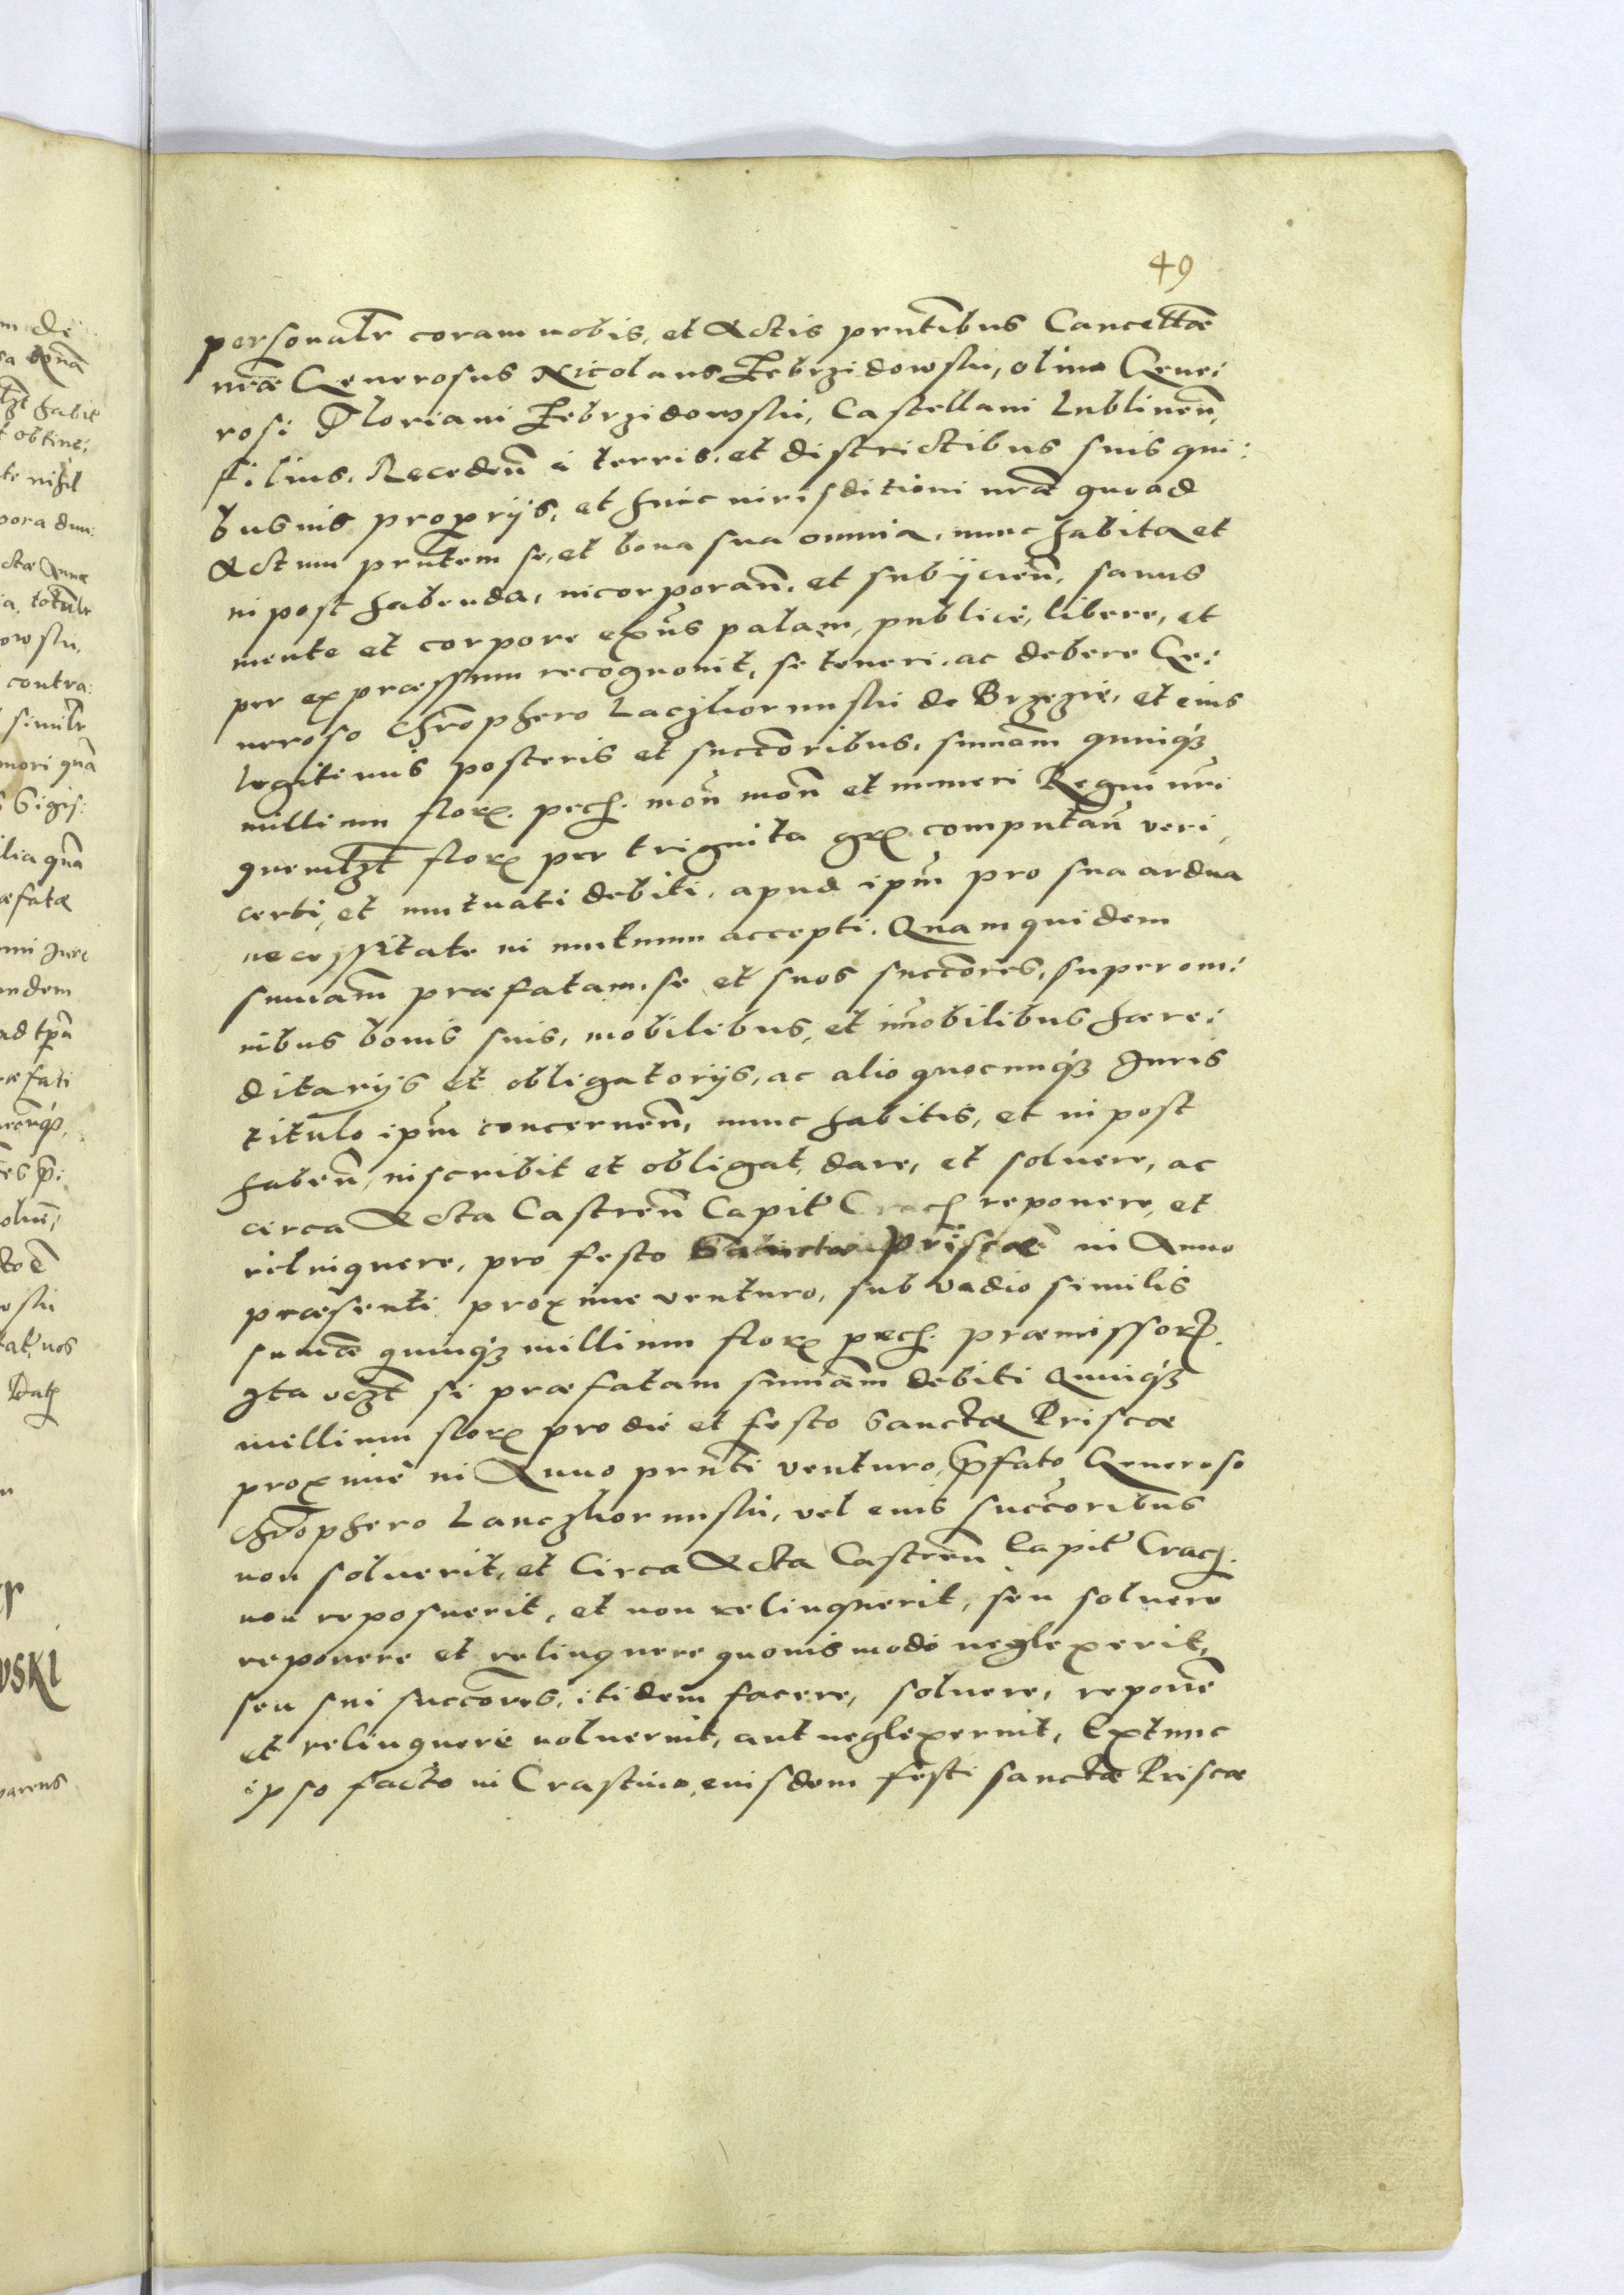 49
personalr coram nobis, et Actis prntibus Cancellae
nrae Generosus Nicolaus Zebrzidowski, olim Gene:
rosi Floriani Zebrzidowski, Castellani Lublinen,
filius. Receden a terris, et districtibus suis qui:
busuis proprijs, et huic iurisditioni nrae quoad
Actum prntem se, et bona sua omnia, nunc habita et
in post habenda, incorporan, et subijcien, sanus
mente et corpore exns palam, publice, libere, et
per expraessum recognouit, se teneri, ac debere Ge:
neroso Chrophero Laczkorunski de Brzezie, et eius
legitimis posteris et succoribus, sumam quinq3
millium flor. pech. mon mon et numeri Regni nri
quemlzt flor per triginta gr computan veri,
certi, et mutuati debiti, apud ipm pro sua ardua
necessitate in mutuum accepti. Quam quidem
sumam praefatam, se et suos succores, super om:
nibus bonis suis, mobilibus, et imobilibus haere:
ditarijs et obligatorijs, ac alio quocunq3 Iuris
titulo ipm concernen, nunc habitis, et in post
haben, inscribit et obligat, dare, et soluere, ac
circa Acta Castren Capit Crach reponere, et
relinquere, pro festo Sanctae Priscae in Anno
praesenti proxime venturo, sub vadio similis
sumae quinq3 millium flor pech. praemissor.
Ita vczt si praefatam sumam debiti Quinq3
millium flor pro die et festo Sanctae Priscae
proxime in Anno prnti venturo, pfato Generoso
Chrophero Lanczkorunski, vel eius succoribus
non soluerit, et Circa Acta Castren Capit Crach.
non reposuerit, et non relinquerit, seu soluere
reponere et relinquere quouis modo neglexerit,
seu sui succores, itidem facere, soluere, repone
et relinquere noluerint, aut neglexerint, Extunc
ipso facto in Crastino, eiusdem festi sanctae Priscae